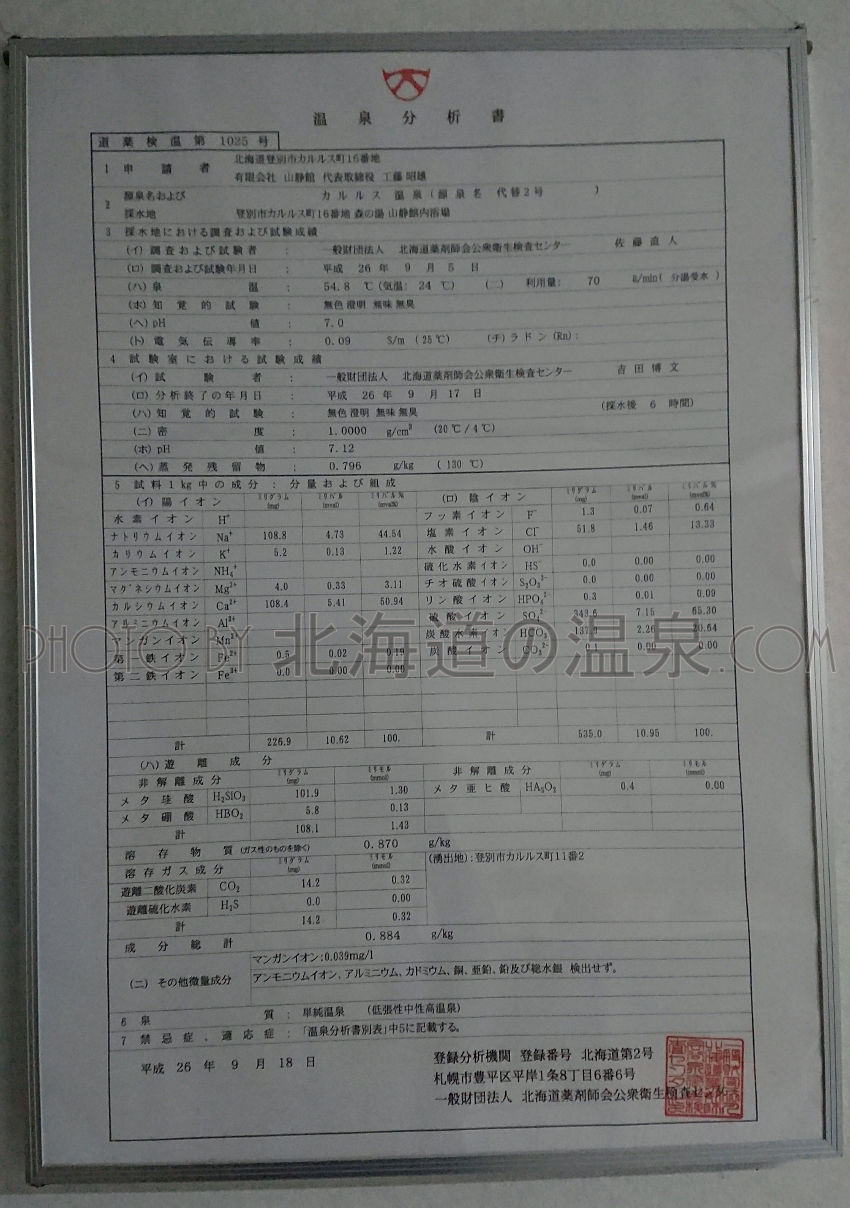 温泉分析書
道薬検温第 1025 号
1 申請者 北海道登別市カルルス町16番地
有限会社 山静館 代表取締役 工藤 昭雄
2 源泉名および カルルス 温泉 ( 源泉名 代替2号 )
採水地 登別市カルルス町16番地 森の湯 山静館内浴場
3 採水地における調査および試験成績
(イ) 調査および試験者 : 一般財団法人 北海道薬剤師会公衆衛生検査センター 佐藤直人
(ロ) 調査および試験年月日 : 平成 26 年 9 月 5 日
(ハ) 泉温 : 54.8 ℃ (気温: 24 ℃) (ニ) 利用量: 70 ℓ/min( 分湯受水 )
(ホ) 知覚的試験 : 無色 澄明 無味 無臭
(ヘ) pH値 : 7.0
(ト) 電気伝導率 : 0.09 S/m (25℃) (チ) ラドン(Rn) :
4 試験室における試験成績
(イ) 試験者 : 一般財団法人 北海道薬剤師会公衆衛生検査センター 吉田博文
(ロ) 分析終了の年月日 : 平成 26 年 9 月 17 日
(ハ) 知覚的試験 : 無色 澄明 無味 無臭 (採水後 6 時間)
(ニ) 密度 : 1.0000 g/cm³ (20℃/4℃)
(ホ) pH値 : 7.12
(ヘ) 蒸発残留物 : 0.796 g/kg (130℃)
5 試料1kg中の成分 : 分量および組成
(イ) 陽イオン ミリグラム (mg) ミリバル (mval) ミリバル% (mval%) (ロ) 陰イオン ミリグラム (mg) ミリバル (mval) ミリバル% (mval%)
水素イオン H⁺ フッ素イオン F⁻ 1.3 0.07 0.64
ナトリウムイオン Na⁺ 108.8 4.73 44.54 塩素イオン Cl⁻ 51.8 1.46 13.33
カリウムイオン K⁺ 5.2 0.13 1.22 水酸イオン OH⁻
アンモニウムイオン NH₄⁺ 硫化水素イオン HS⁻ 0.0 0.00 0.00
マグネシウムイオン Mg²⁺ 4.0 0.33 3.11 チオ硫酸イオン S₂O₃²⁻ 0.0 0.00 0.00
カルシウムイオン Ca²⁺ 108.4 5.41 50.94 リン酸イオン HPO₄²⁻ 0.3 0.01 0.09
アルミニウムイオン Al³⁺ 硫酸イオン SO₄²⁻ 343.6 7.15 65.30
マンガンイオン Mn²⁺ 炭酸水素イオン HCO₃⁻ 137.9 2.26 20.64
第一鉄イオン Fe²⁺ 0.5 0.02 0.19 炭酸イオン CO₃²⁻ 0.1 0.00 0.00
第二鉄イオン Fe³⁺ 0.0 0.00 0.00
PHOTO BY 北海道の温泉.COM
計 226.9 10.62 100. 計 535.0 10.95 100.
(ハ) 遊離成分
非解離成分 ミリグラム (mg) ミリモル (mmol) 非解離成分 ミリグラム (mg) ミリモル (mmol)
メタ珪酸 H₂SiO₃ 101.9 1.30 メタ亜ヒ酸 HAsO₂ 0.4 0.00
メタ硼酸 HBO₂ 5.8 0.13
計 108.1 1.43
溶存物質 (ガス性のものを除く) 0.870 g/kg
溶存ガス成分 ミリグラム (mg) ミリモル (mmol) (湧出地) : 登別市カルルス町11番2
遊離二酸化炭素 CO₂ 14.2 0.32
遊離硫化水素 H₂S 0.0 0.00
計 14.2 0.32
成分総計 0.884 g/kg
マンガンイオン;0.039mg/l
(ニ) その他微量成分 アンモニウムイオン、アルミニウム、カドミウム、銅、亜鉛、鉛及び総水銀 検出せず。
6 泉質 : 単純温泉 (低張性中性高温泉)
7 禁忌症、適応症 : 「温泉分析書別表」中5に記載する。
平成 26 年 9 月 18 日
登録分析機関 登録番号 北海道第2号
札幌市豊平区平岸1条8丁目6番6号
一般財団法人 北海道薬剤師会公衆衛生検査センター